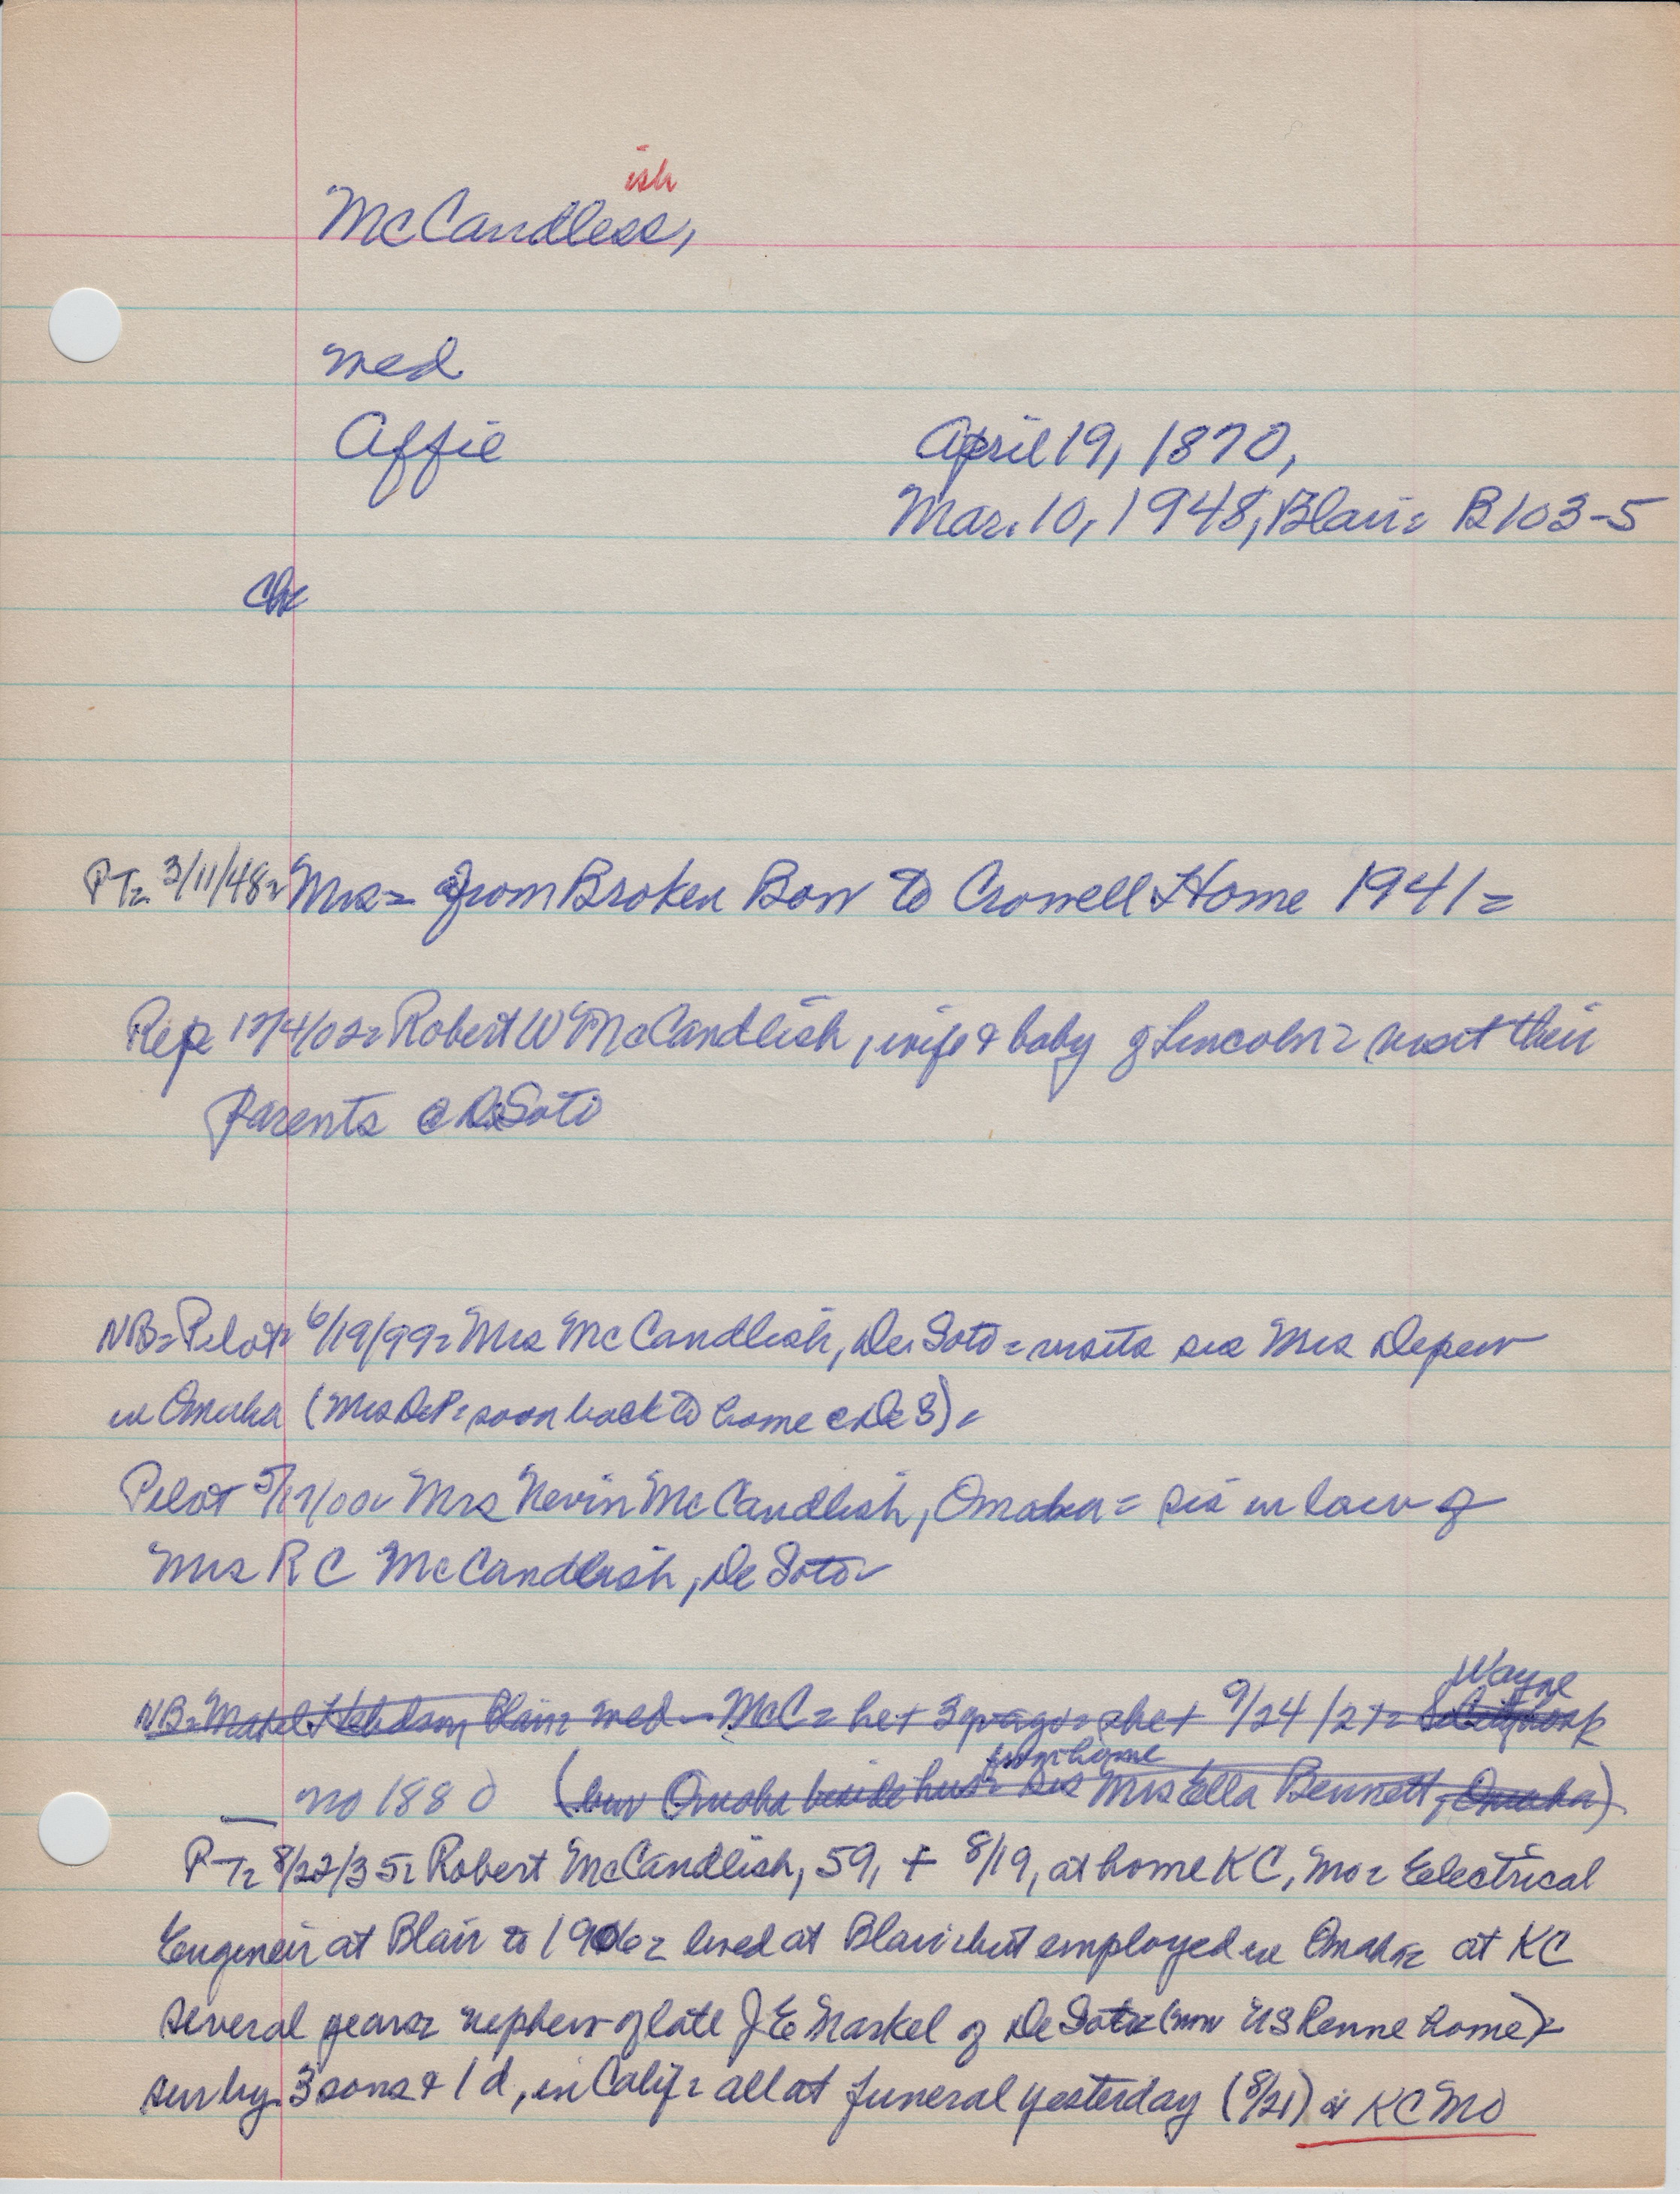 ish
McCandless,
med
Affie April 19, 1870,
Mar. 10, 1948, Blair= B103-5
Chr
PT= 3/11/48= Mrs= from Broken Bow to Crowell Home 1941=
Rep 12/4/02= Robert W McCandlish, wife & baby of Lincoln= visit their
parents @ DeSoto
NB= Pilot= 6/19/99= Mrs McCandlish, De Soto= visits sis Mrs Depew
in Omaha (Mrs DeP= soon back to home @ De S)=
Pilot 5/17/00= Mrs Nevin McCandlish, Omaha= sis in law of
Mrs R C McCandlish, De Soto=
Wayne
NB= Mabel Blair= med — McC= he+ 3 yr ago= she+ 9/24/27=
from home
no 1880 (bur Omaha beside hus= sis Mrs Ella Bennett, Omaha)
PT= 8/22/35= Robert McCandlish, 59, + 8/19, at home KC, Mo= Eelectrical
Engineir at Blair to 1906= lived at Blair but employed in Omaha= at KC
several years= nephew of late J E Markel of De Soto (now US Renne home)=
sur by 3 sons & 1 d, in Calif= all at funeral yesterday (8/21) at KC Mo